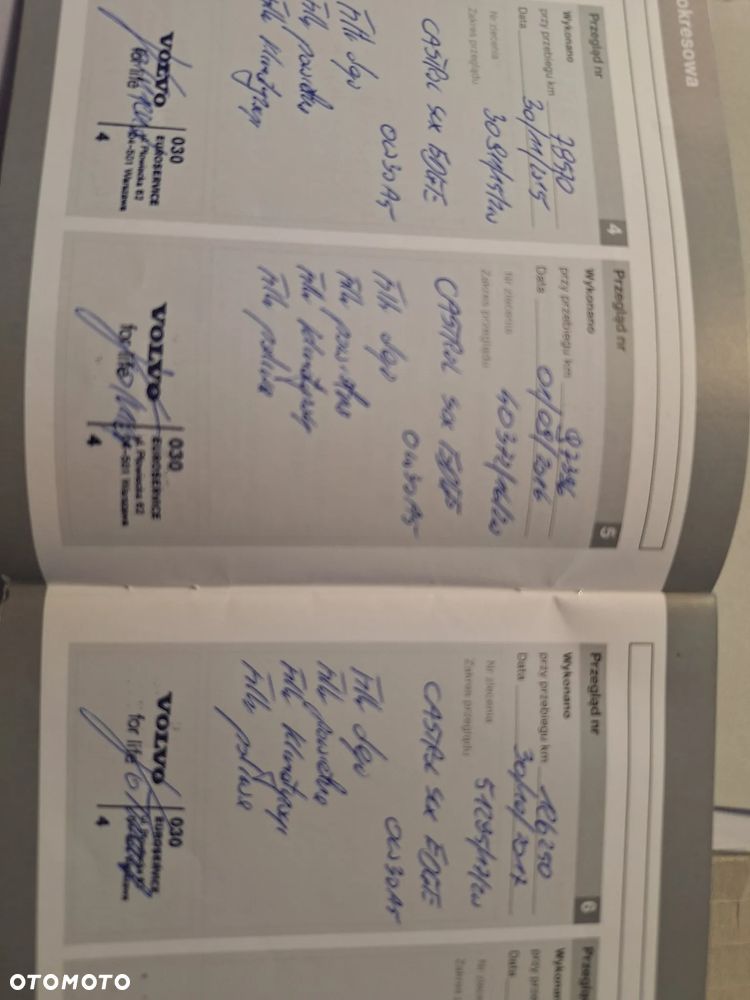 okresowa
Przegląd nr 4
Wykonano
przy przebiegu km
Data 30/11/2015
Nr zlecenia
Zakres przeglądu
CASTROL 5EX EDGE
0W30A5
filtr oleju
filtr powietrza
VOLVO
for life
030
EUROSERVICE
ul. Płowiecka 62
04-501 Warszawa
4
Przegląd nr 5
Wykonano
przy przebiegu km
Data 01/09/2016
Nr zlecenia
Zakres przeglądu
CASTROL EDGE
0W30A5
filtr oleju
filtr powietrza
filtr klimatyzacji
filtr paliwa
VOLVO
for life
030
EUROSERVICE
ul. Płowiecka 62
04-501 Warszawa
4
Przegląd nr 6
Wykonano
przy przebiegu km 126290
Data 30/10/2017
Nr zlecenia
Zakres przeglądu
CASTROL EDGE
0W30A5
filtr oleju
filtr powietrza
filtr klimatyzacji
filtr paliwa
VOLVO
for life
030
EUROSERVICE
4
Wykonano
Data
OTOMOTO